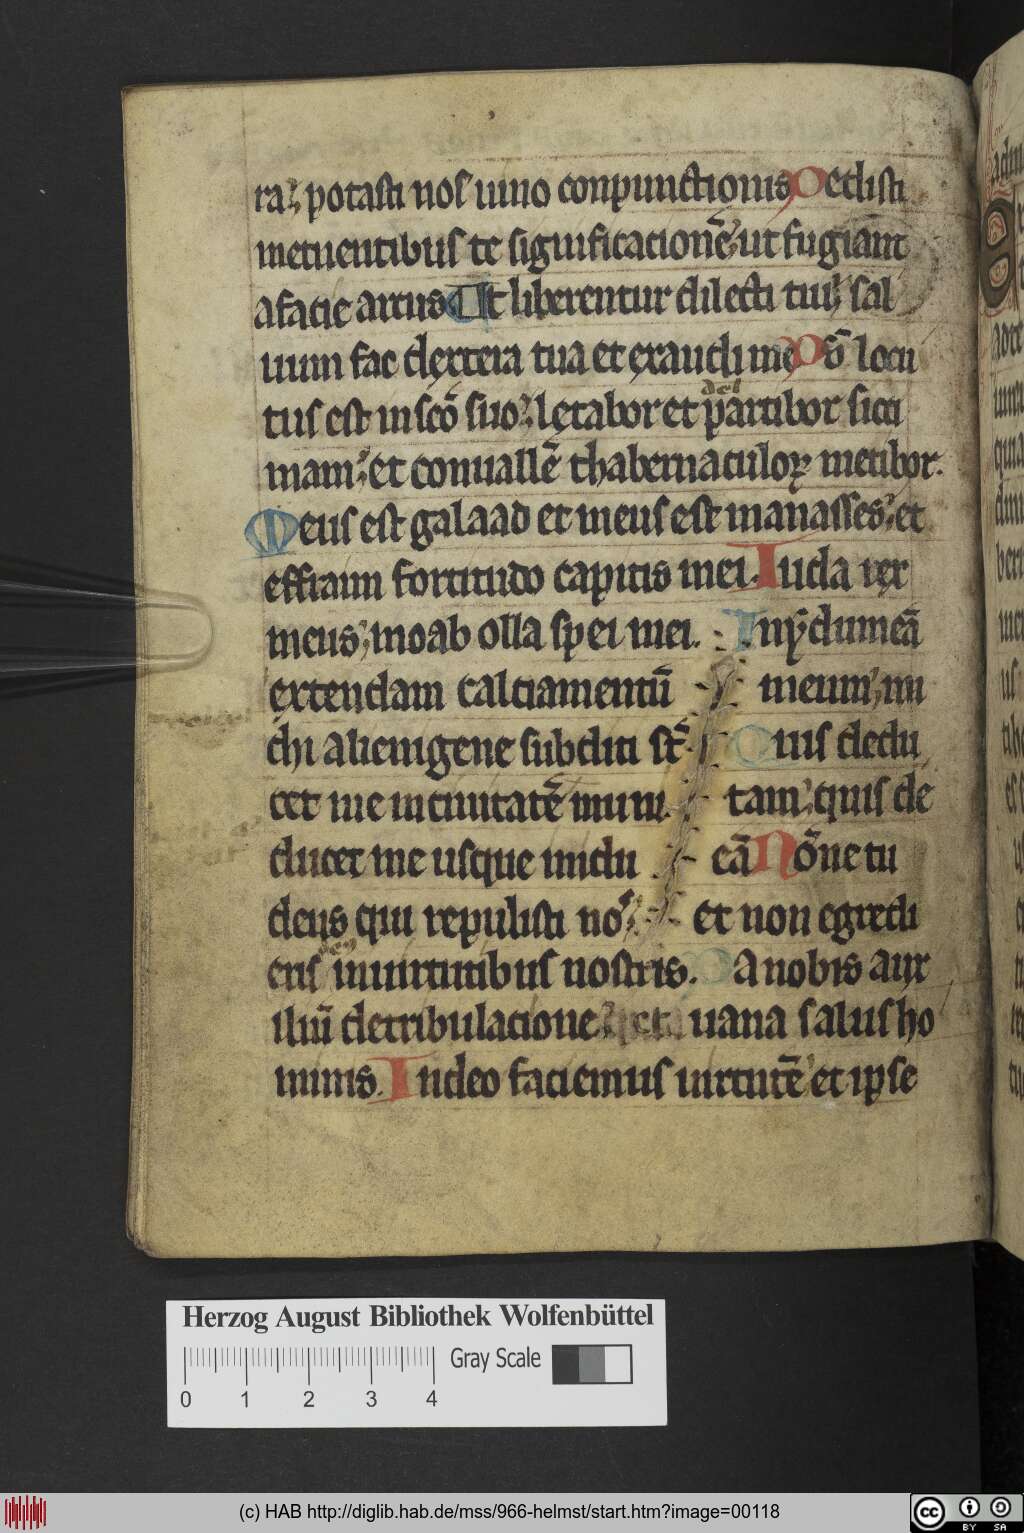 ra; potasti nos uino conpunctionis Dedisti
metuentibus te significationē; ut fugiant
a facie arcus Ut liberentur dilecti tui; sal
uum fac dextera tua et exaudi me Dš locu
tus est in scō suo; letabor et partibor sici
mam; et conuallē thabernaculoꝝ metibor.
Meus est galaad et meus est manasses; et
effraim fortitudo capitis mei. Iuda rex
meus; moab olla spei mei. In ydumeā
extendam calciamentū meum; mi
chi alienigene subditi st̄. Quis dedu
cet me in ciuitatē muni tam; quis de
ducet me usque in idu eā Nōne tu
deus qui repulisti nos; et non egredi
eris in uirtutibus nostris. Da nobis aux
iliū de tribulatione; uana salus ho
minis. In deo faciemus uirtutē et ipse
Herzog August Bibliothek Wolfenbüttel
Gray Scale
0 1 2 3 4
(c) HAB http://diglib.hab.de/mss/966-helmst/start.htm?image=00118
CC BY SA